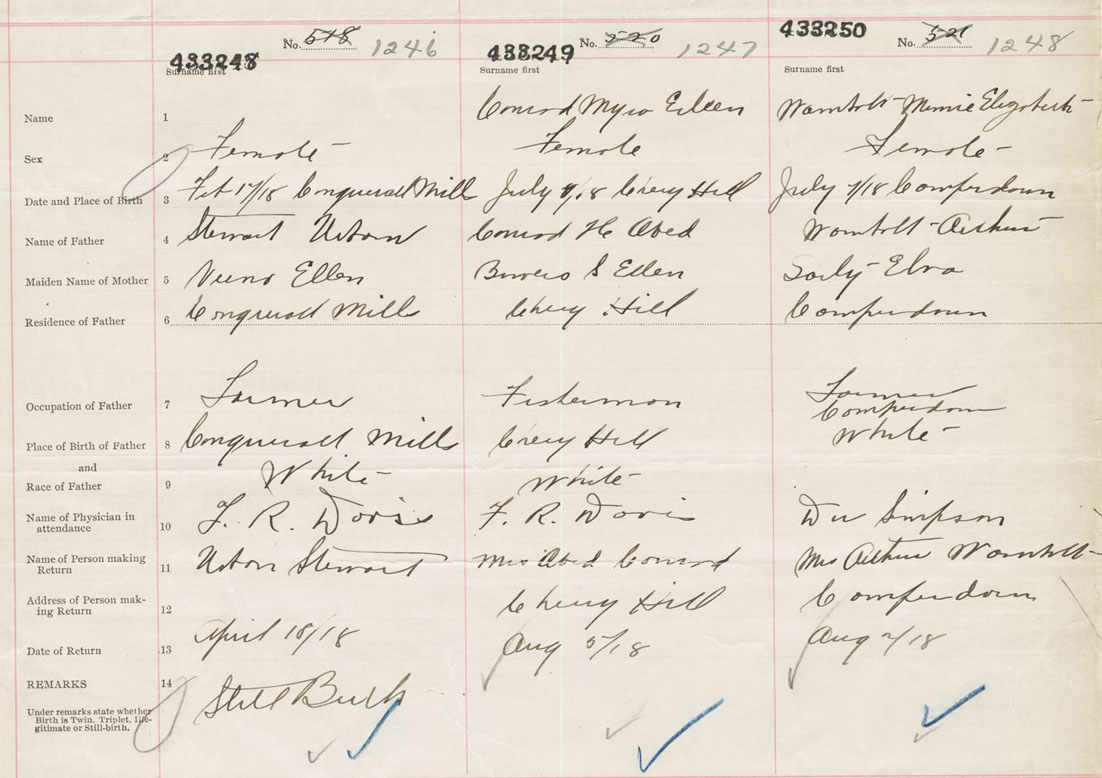 No. 518 1246
No. 520 1247
433250 No. 521 1248
433248
433249
Surname first
Surname first
Surname first
Name 1 Conrad Myra Eileen
Minnie Elizabeth
Sex 2 Female Female Female
Date and Place of Birth 3 Feb 17/18 Conquerall Mill July 9/18 Cherry Hill July 7/18 Camperdown
Name of Father 4 Stewart Urban Conrad H Abed Arthur
Maiden Name of Mother 5 Ellen S Ellen Elva
Residence of Father 6 Conquerall Mill Cherry Hill Camperdown
Occupation of Father 7 Farmer Fisherman Farmer
Place of Birth of Father 8 Conquerall Mills Cherry Hill Camperdown
and
Race of Father 9 White White White
Name of Physician in
attendance 10 F. R. Davis F. R. Davis Dr Simpson
Name of Person making
Return 11 Urban Stewart Mrs Abed Conrad Mrs Arthur
Address of Person mak-
ing Return 12 Cherry Hill Camperdown
Date of Return 13 April 18/18 Aug 5/18 Aug 2/18
REMARKS 14 Still Birth
Under remarks state whether
Birth is Twin, Triplet, Ille-
gitimate or Still-birth.